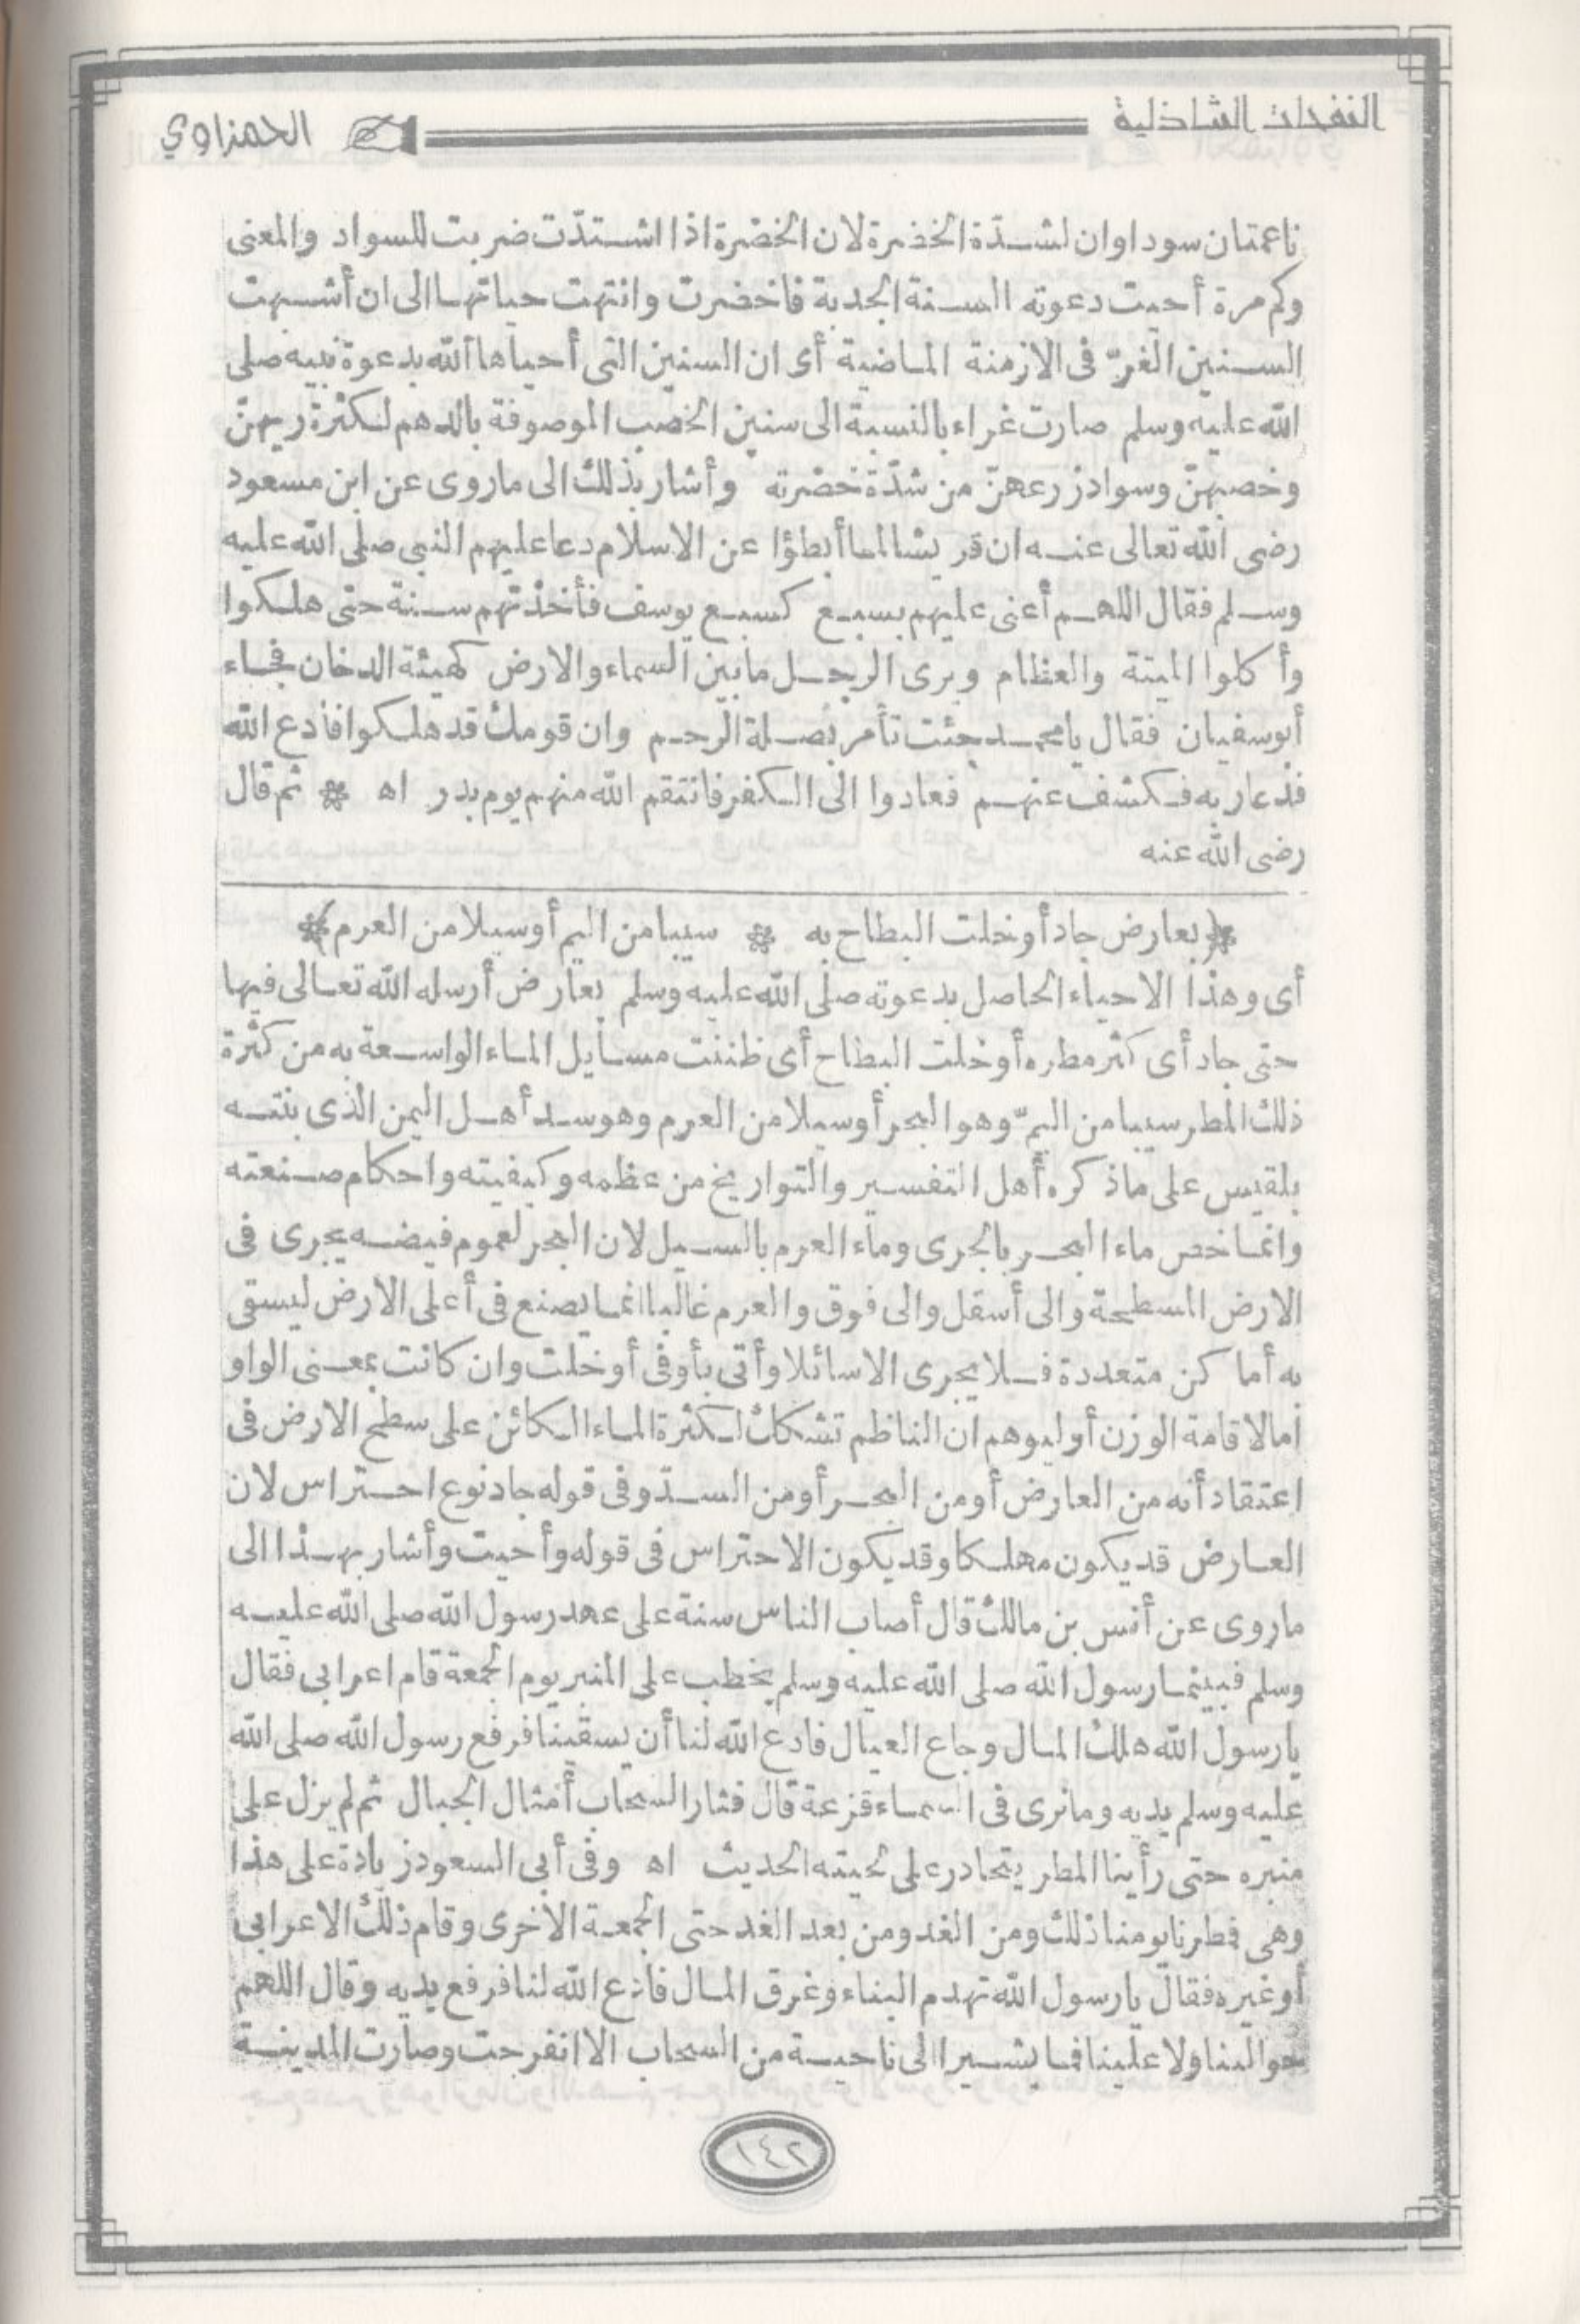 النفحات الشاذلية
الحمزاوي
ناعمتان سوداوان لشدّة الخضرة لان الخضرة اذا اشتدّت ضربت للسواد والمعنى
وكم مرة أحيت دعوته السنة الجدبة فاخضرت وانتهت حياتها الى ان أشبهت
السنين الغرّ فى الازمنة الماضية أى ان السنين التى أحياها الله بدعوة نبيه صلى
الله عليه وسلم صارت غراء بالنسبة الى سنين الخصب الموصوفة بالدهم لكثرة ريهنّ
وخصبهنّ وسواد زرعهنّ من شدّة خضرته وأشار بذلك الى ماروى عن ابن مسعود
رضى الله تعالى عنه ان قريشا لما أبطؤا عن الاسلام دعا عليهم النبى صلى الله عليه
وسلم فقال اللهم أعنى عليهم بسبع كسبع يوسف فأخذتهم سنة حتى هلكوا
وأكلوا الميتة والعظام ويرى الرجل ما بين السماء والارض كهيئة الدخان فجاء
أبو سفيان فقال يا محمد جئت تأمر بصلة الرحم وان قومك قد هلكوا فادع الله
فدعا ربه فكشف عنهم فعادوا الى الكفر فانتقم الله منهم يوم بدر اه * ثم قال
رضى الله عنه
(بعارض جاد أو خلت البطاح به * سيبا من اليم أو سيلا من العرم)
أى وهذا الاحياء الحاصل بدعوته صلى الله عليه وسلم بعارض أرسله الله تعالى فيها
حتى جاد أى كثر مطره أو خلت البطاح أى ظننت مسايل الماء الواسعة به من كثرة
ذلك المطر سيبا من اليمّ وهو البحر أو سيلا من العرم وهو سد أهل اليمن الذى بنته
بلقيس على ما ذكره أهل التفسير والتواريخ من عظمه وكيفيته واحكام صنعته
وانما خص ماء البحر بالجرى وماء العرم بالسيل لان البحر لعموم فيضه يجرى فى
الارض المسطحة والى أسفل والى فوق والعرم غالبا انما يصنع فى أعلى الارض ليسقى
به أماكن متعددة فلا يجرى الا سائلا وأتى بأو فى أو خلت وان كانت بمعنى الواو
امالاقامة الوزن أو ليوهم ان الناظم تشكك لكثرة الماء الكائن على سطح الارض فى
اعتقاد أنه من العارض أو من البحر أو من السدّ وفى قوله جاد نوع احتراس لان
العارض قد يكون مهلكا وقد يكون الاحتراس فى قوله وأحيت وأشار بهذا الى
ماروى عن أنس بن مالك قال أصاب الناس سنة على عهد رسول الله صلى الله عليه
وسلم فبينما رسول الله صلى الله عليه وسلم يخطب على المنبر يوم الجمعة قام اعرابى فقال
يا رسول الله هلك المال وجاع العيال فادع الله لنا أن يسقينا فرفع رسول الله صلى الله
عليه وسلم يديه وما نرى فى السماء قزعة قال فثار السحاب أمثال الجبال ثم لم يزل على
منبره حتى رأينا المطر يتحادر على لحيته الحديث اه وفى أبى السعود زيادة على هذا
وهى فطرنا يومنا ذلك ومن الغد ومن بعد الغد حتى الجمعة الاخرى وقام ذلك الاعرابى
أو غيره فقال يا رسول الله تهدم البناء وغرق المال فادع الله لنا فرفع يديه وقال اللهم
حوالينا ولا علينا فما يشير الى ناحية من السحاب الا انفرجت وصارت المدينة
١٤٢